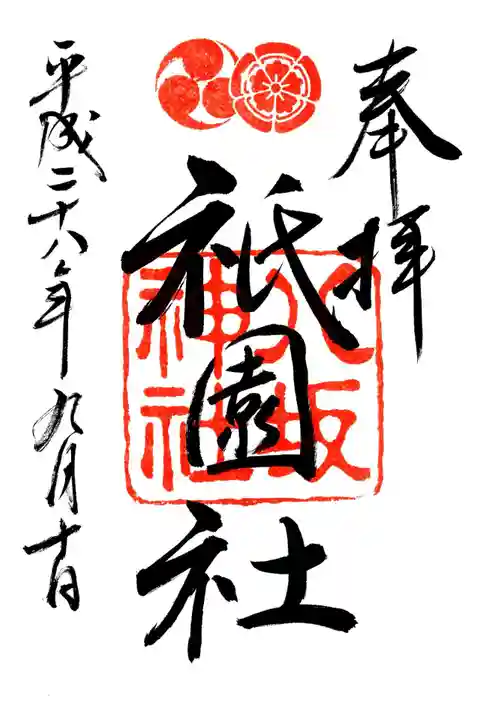 奉拝
祇園社
八坂
神社
平成二十八年九月十日